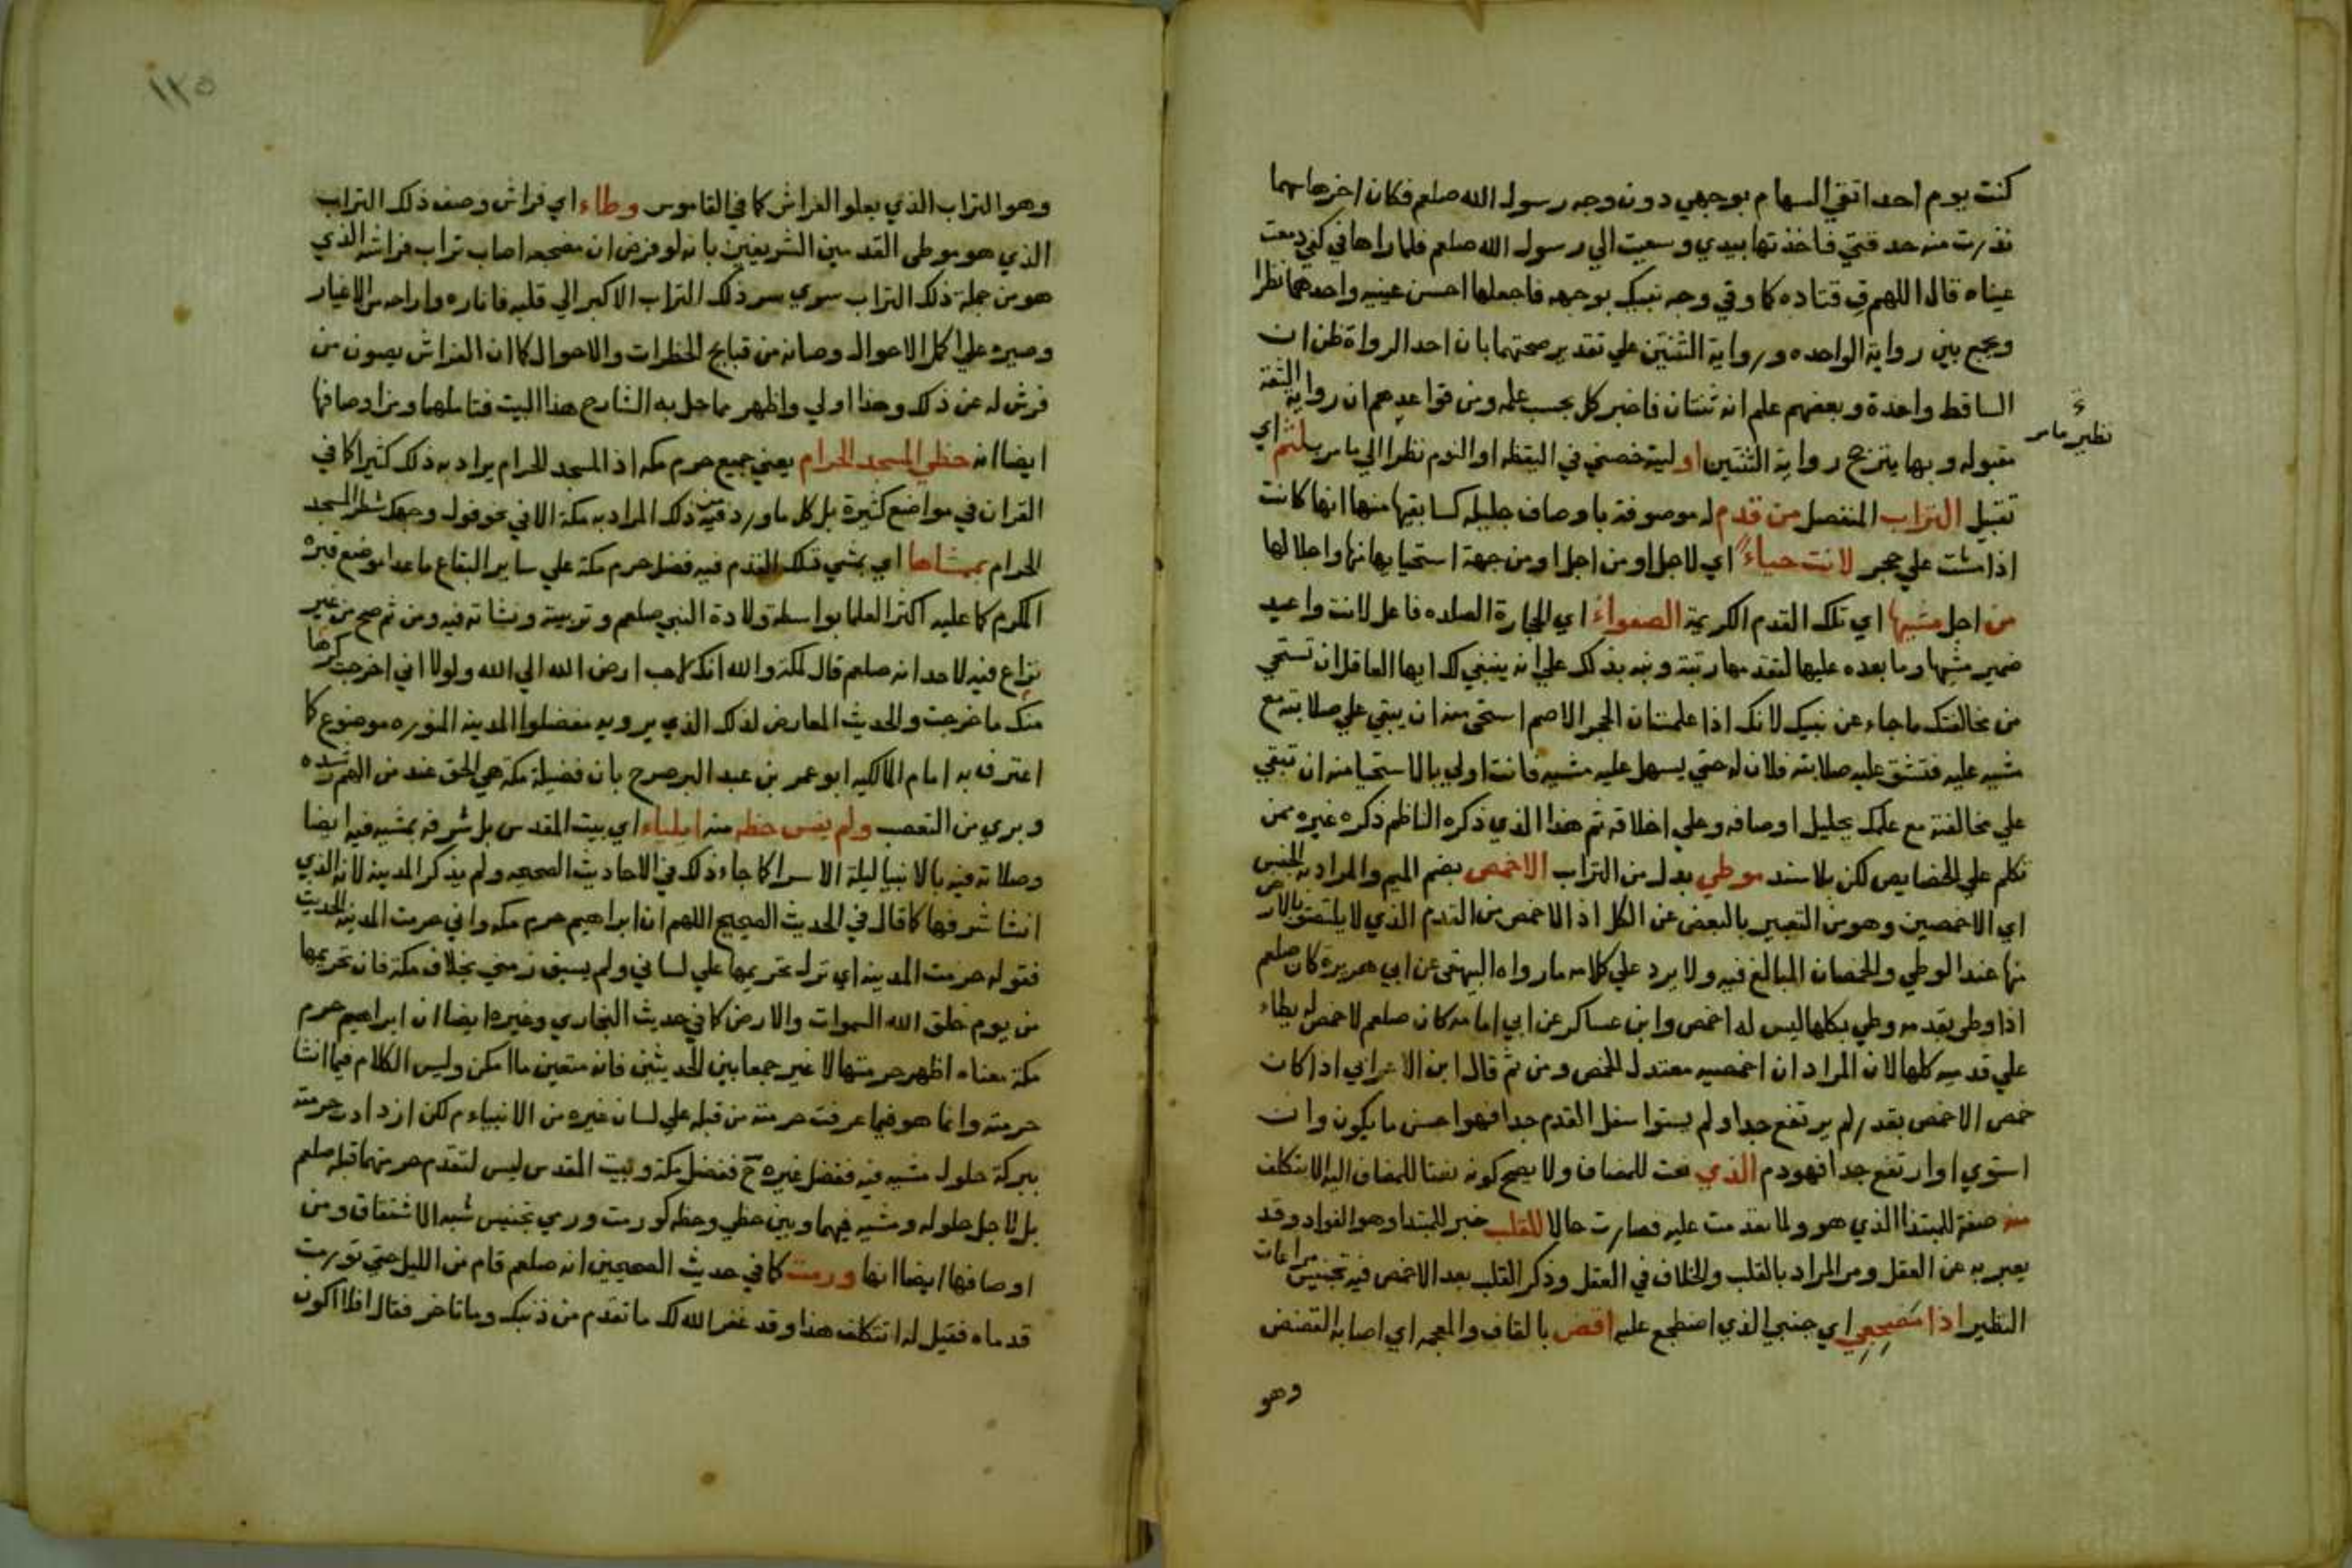 كنت يوم احد اتقي السهام بوجهي دون وجه رسول الله صلعم فكان اخرها سهما
نذرت منه حدقتي فاخذتها بيدي وسعيت الي رسول الله صلعم فلما راها في كفي دمعت
عيناه قال اللهم قِ قتاده كما وقي وجه نبيك بوجهه فاجعلها احسن عينيه واحدهما نظرا
ويجمع بين رواية الواحده ورواية الثنتين علي تقدير صحتهما بان احد الرواة ظن ان
الساقط واحدة وبعضهم علم انه ثنتان فاخبر كل بحسب علمه ومن قواعدهم ان رواية الثقة
مقبوله وبها يترجح رواية الثنتين او ليته خصني في اليقظه او النوم نظرا الي ما مر بلثم اي
نظير ما مر
تقبيل التراب المنفصل من قدم له موصوفة باوصاف جليله كسابقها منها انها كانت
اذا مشت علي حجر لانت حياء اي لاجل او من اجل او من جهة استحيايها منها واجلالها
من اجل مشيها اي تلك القدم الكريمة الصفواء اي الحجارة الصلده فاعل لانت واعيد
ضمير مشيها وما بعده عليها لتقدمها رتبة ونبه بذلك علي انه ينبغي لك ايها العاقل ان تستحي
من مخالفتك ما جاء عن نبيك لانك اذا علمت ان الحجر الاصم استحي منه ان يبقي علي صلابته مع
مشيه عليه فتشق عليه صلابته فلان له حتي يسهل عليه مشيه فانت اولي بالاستحيا منه ان تبقي
علي مخالفته مع علمك بجليل اوصافه وعلي اخلاقه ثم هذا الذي ذكره الناظم ذكره غيره ممن
تكلم علي الخصايص لكن بلا سند موطي بدل من التراب الاخمص بضم الميم والمراد به الجنس
اي الاخمصين وهو من التعبير بالبعض عن الكل اذ الاخمص من القدم الذي لا يلتصق بالارض
منها عند الوطي والخمصان المبالغ فيه ولا يرد علي كلامه ما رواه البيهقي عن ابي هريرة كان صلعم
اذا وطي بقدمه وطي بكلها ليس له اخمص وابن عساكر عن ابي امامه كان صلعم لا اخمص له يطاء
علي قدميه كلها لان المراد ان اخمصيه معتدل الخمص ومن ثم قال ابن الاعرابي اذا كان
خمص الاخمص بقدر لم يرتفع جدا ولم يستوا سفل القدم جدا فهو احسن ما يكون وان
استوي او ارتفع جدا فهو دم الذي نعت للمضاف ولا يصح كونه نعتا للمضاف اليه الا بتكلف
منه صفة للمبتدا الذي هو ولما تقدمت عليه فصارت حالا للقلب خبر المبتدا وهو الفواد وقد
يعبر به عن العقل ومر المراد بالقلب والخلاف في العقل وذكر القلب بعد الاخمص فيه تجنيس مراعات
النظير اذا مضجعي اي جنبي الذي اضطجع عليه اقض بالقاف والمعجمه اي اصابه القضض
وهو
١٢٥
وهو التراب الذي يعلو الفراش كما في القاموس وطاء اي فراش وصفه ذلك التراب
الذي هو موطي القدمين الشريفين بانه لو فرض ان مضجعه اصاب تراب فراشه الذي
هو من جملة ذلك التراب سوي سر ذلك التراب الاكبر الي قلبه فاناره واراحه من الاغيار
وصيره علي اكمل الاحوال وصانه من قبايح الخطرات والاحوال كما ان الفراش يصون من
فرش له عن ذلك وهذا اولي واظهر مما حل به الشارح هذا البيت فتاملهما ومن اوصافها
ايضا انه حظي المسجد الحرام يعني جميع حرم مكه اذ المسجد الحرام يراد به ذلك كثيرا كما في
القران في مواضع كثيرة بل كل ما ورد فيه من ذلك المراد به مكة الا في نحو فول وجهك شطر المسجد
الحرام بممشاها اي بمشي تلك القدم فيه فضل حرم مكة علي ساير البقاع ما عدا موضع قبره
المكرم كما عليه اكثر العلما بواسطة ولادة النبي صلعم وتربيته ونشاته فيه ومن ثم صح من غير
نزاع فيه لاحد انه صلعم قال لمكة والله انك لاحب ارض الله الي الله ولولا اني اخرجت كرها
منك ما خرجت والحديث المعارض لذلك الذي يرويه مفضلوا المدينه المنوره موضوع كما
اعترف به امام المالكيه ابو عمر بن عبد البر صرح بان فضيلة مكة هي الحق عند من الهم رشده
وبري من التعصب ولم ينس حظه منه ايلياء اي بيت المقدس بل شرفه بمشيه فيه ايضا
وصلاته فيه بالانبيا ليلة الاسرا كما جاء ذلك في الاحاديث الصحيحه ولم يذكر المدينه لانه الذي
انشا شرفها كما قال في الحديث الصحيح اللهم ان ابراهيم حرم مكه واني حرمت المدينه الحديث
فقوله حرمت المدينه اي نزل تحريمها علي لساني ولم يسبق زمني بخلاف مكة فان تحريمها
من يوم خلق الله السموات والارض كما في حديث البخاري وغيره ايضا ان ابراهيم حرم
مكة معناه اظهر حرمتها لا غير جمعا بين الحديثين فانه متعين ما امكن وليس الكلام فيما انشا
حرمته وانما هو فيما عرفت حرمته من قبله علي لسان غيره من الانبياء م لكن ازدادت حرمته
ببركة حلول مشيه فيه ففضل غيره ح ففضل مكة وبيت المقدس ليس لتقدم حرمتهما قبله صلعم
بل لاجل حلوله ومشيه فيهما وبين حظي وحظه كورمت ورمي تجنيس شبه الاشتقاق ومن
اوصافها ايضا انها ورمت كما في حديث الصحيحين انه صلعم قام من الليل حتي تورمت
قدماه فقيل له اتتكلف هذا وقد غفر الله لك ما تقدم من ذنبك وما تاخر فقال افلا اكون